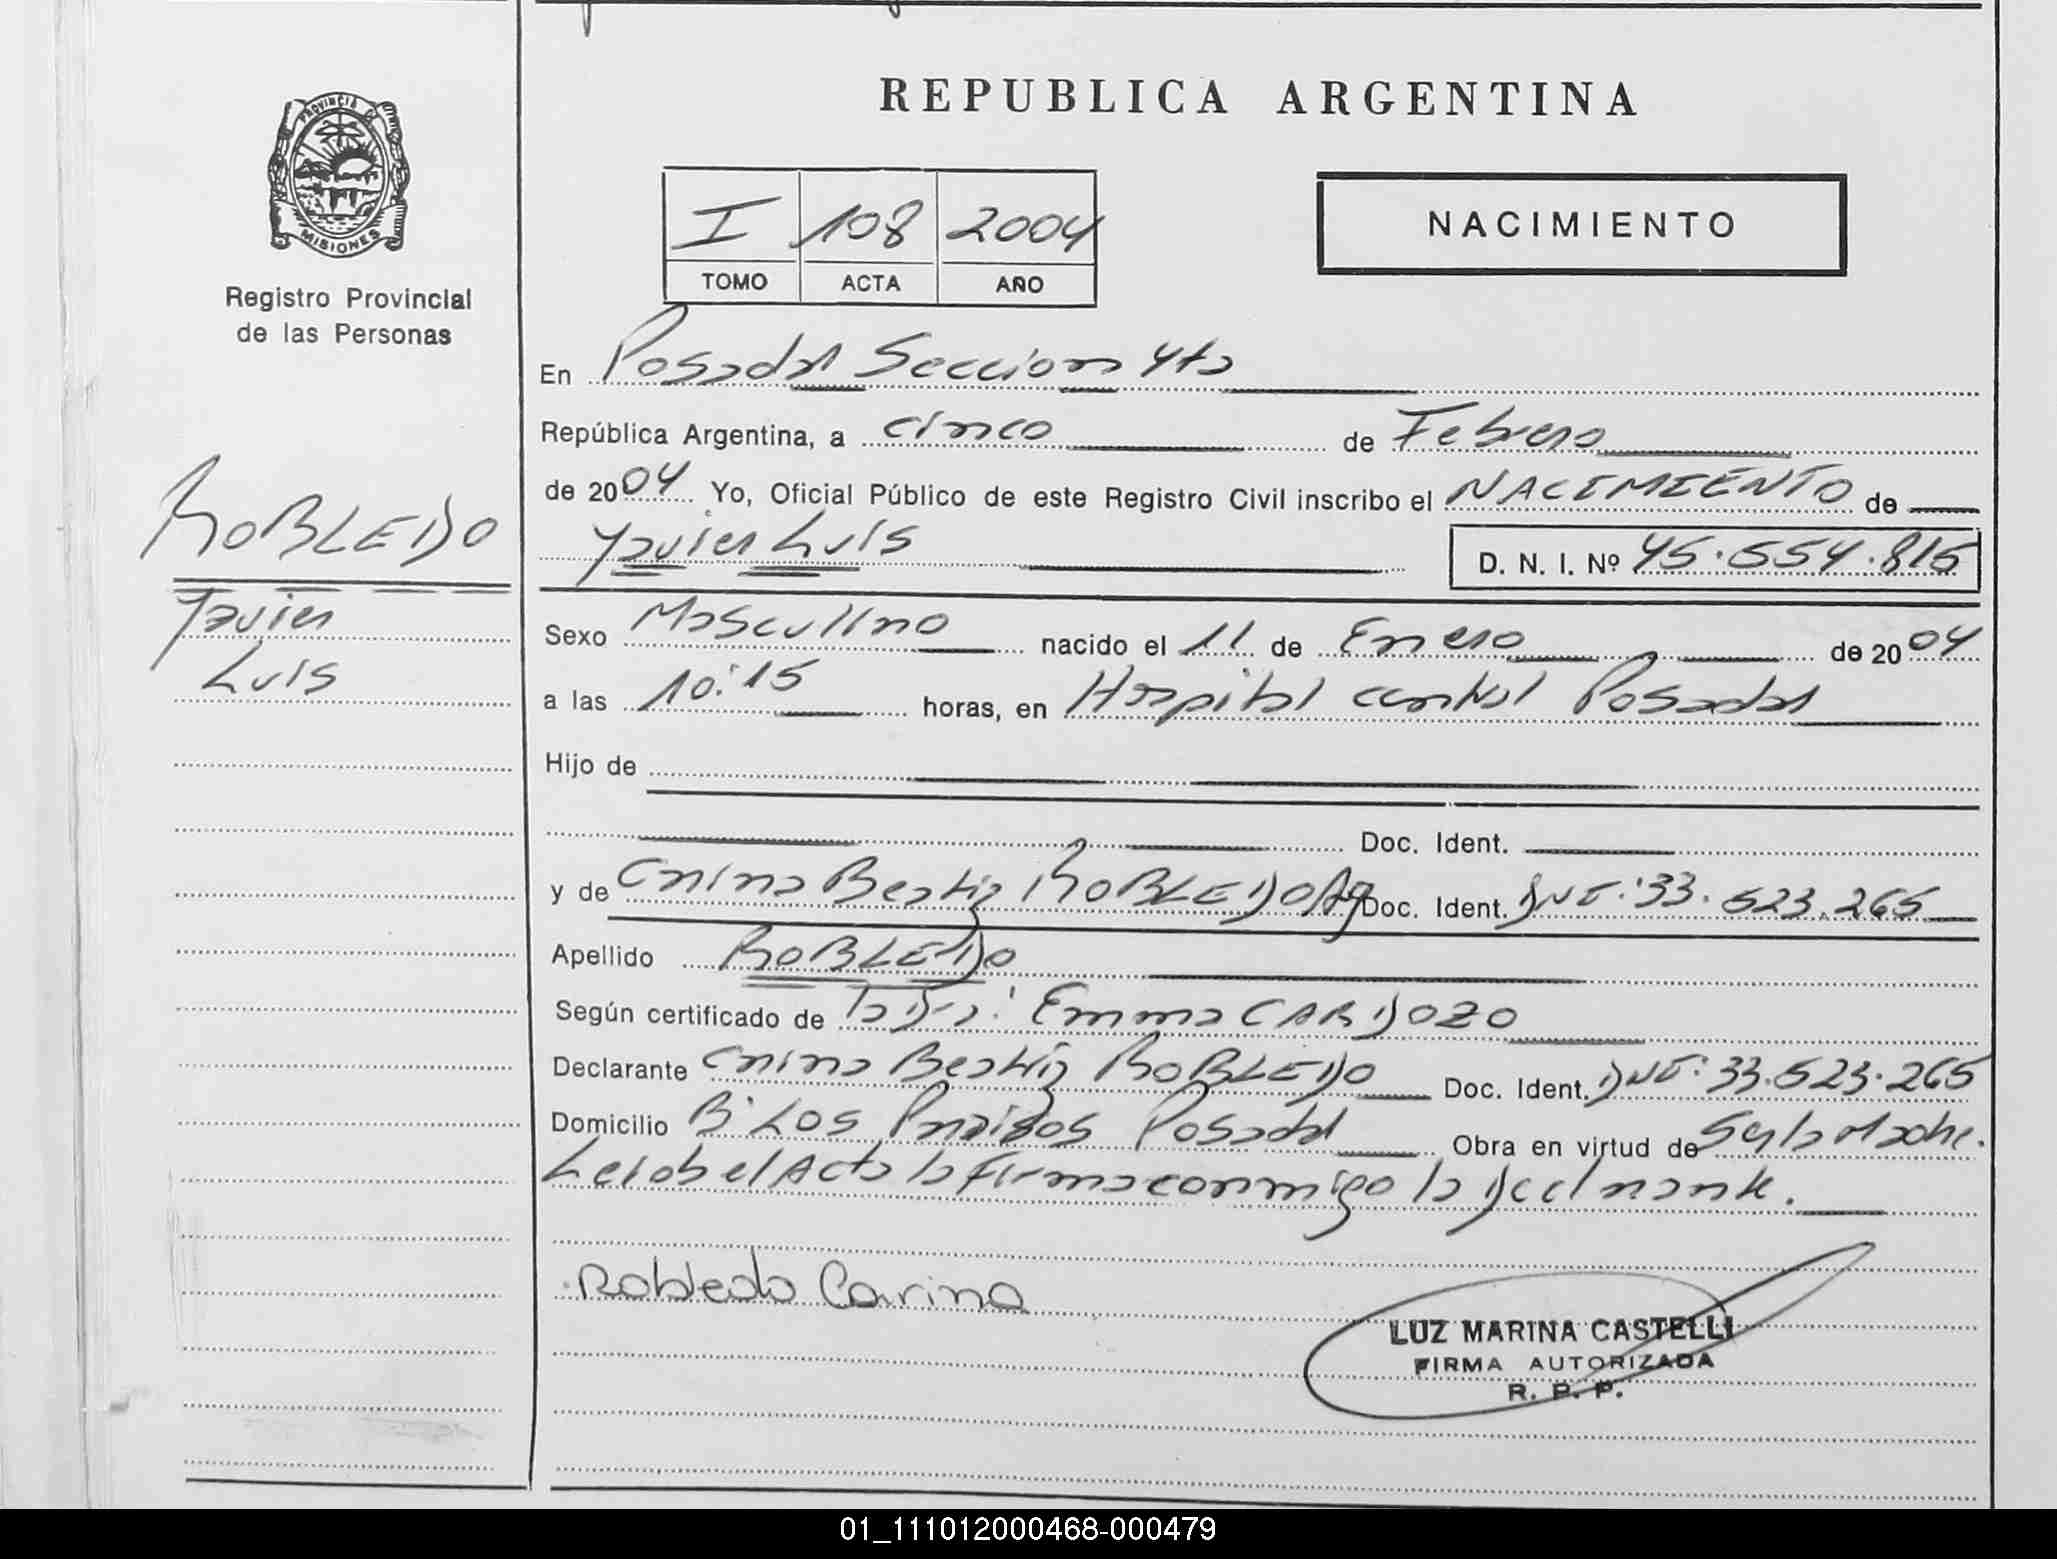 PROVINCIA DE
MISIONES
Registro Provincial
de las Personas
ROBLEDO
Javier
Luis
REPUBLICA ARGENTINA
I 108 2004
TOMO ACTA AÑO
NACIMIENTO
En Posadas Seccion 4ta
República Argentina, a cinco de Febrero
de 2004 Yo, Oficial Público de este Registro Civil inscribo el NACIMIENTO de
Javier Luis D. N. I. Nº 45.554.815
Sexo Masculino nacido el 11 de Enero de 2004
a las 10:15 horas, en Hospital central Posadas
Hijo de
Doc. Ident.
y de Carina Beatriz ROBLEDO Arg Doc. Ident. DNI: 33.523.265
Apellido ROBLEDO
Según certificado de la Dra: Emma CARDOZO
Declarante Carina Beatriz ROBLEDO Doc. Ident. DNI: 33.523.265
Domicilio B° Los Paraisos Posadas Obra en virtud de Ser la Madre.
Leida el Acta la firma conmigo la Declarante.
Robledo Carina
LUZ MARINA CASTELLI
FIRMA AUTORIZADA
R. P. P.
01_111012000468-000479